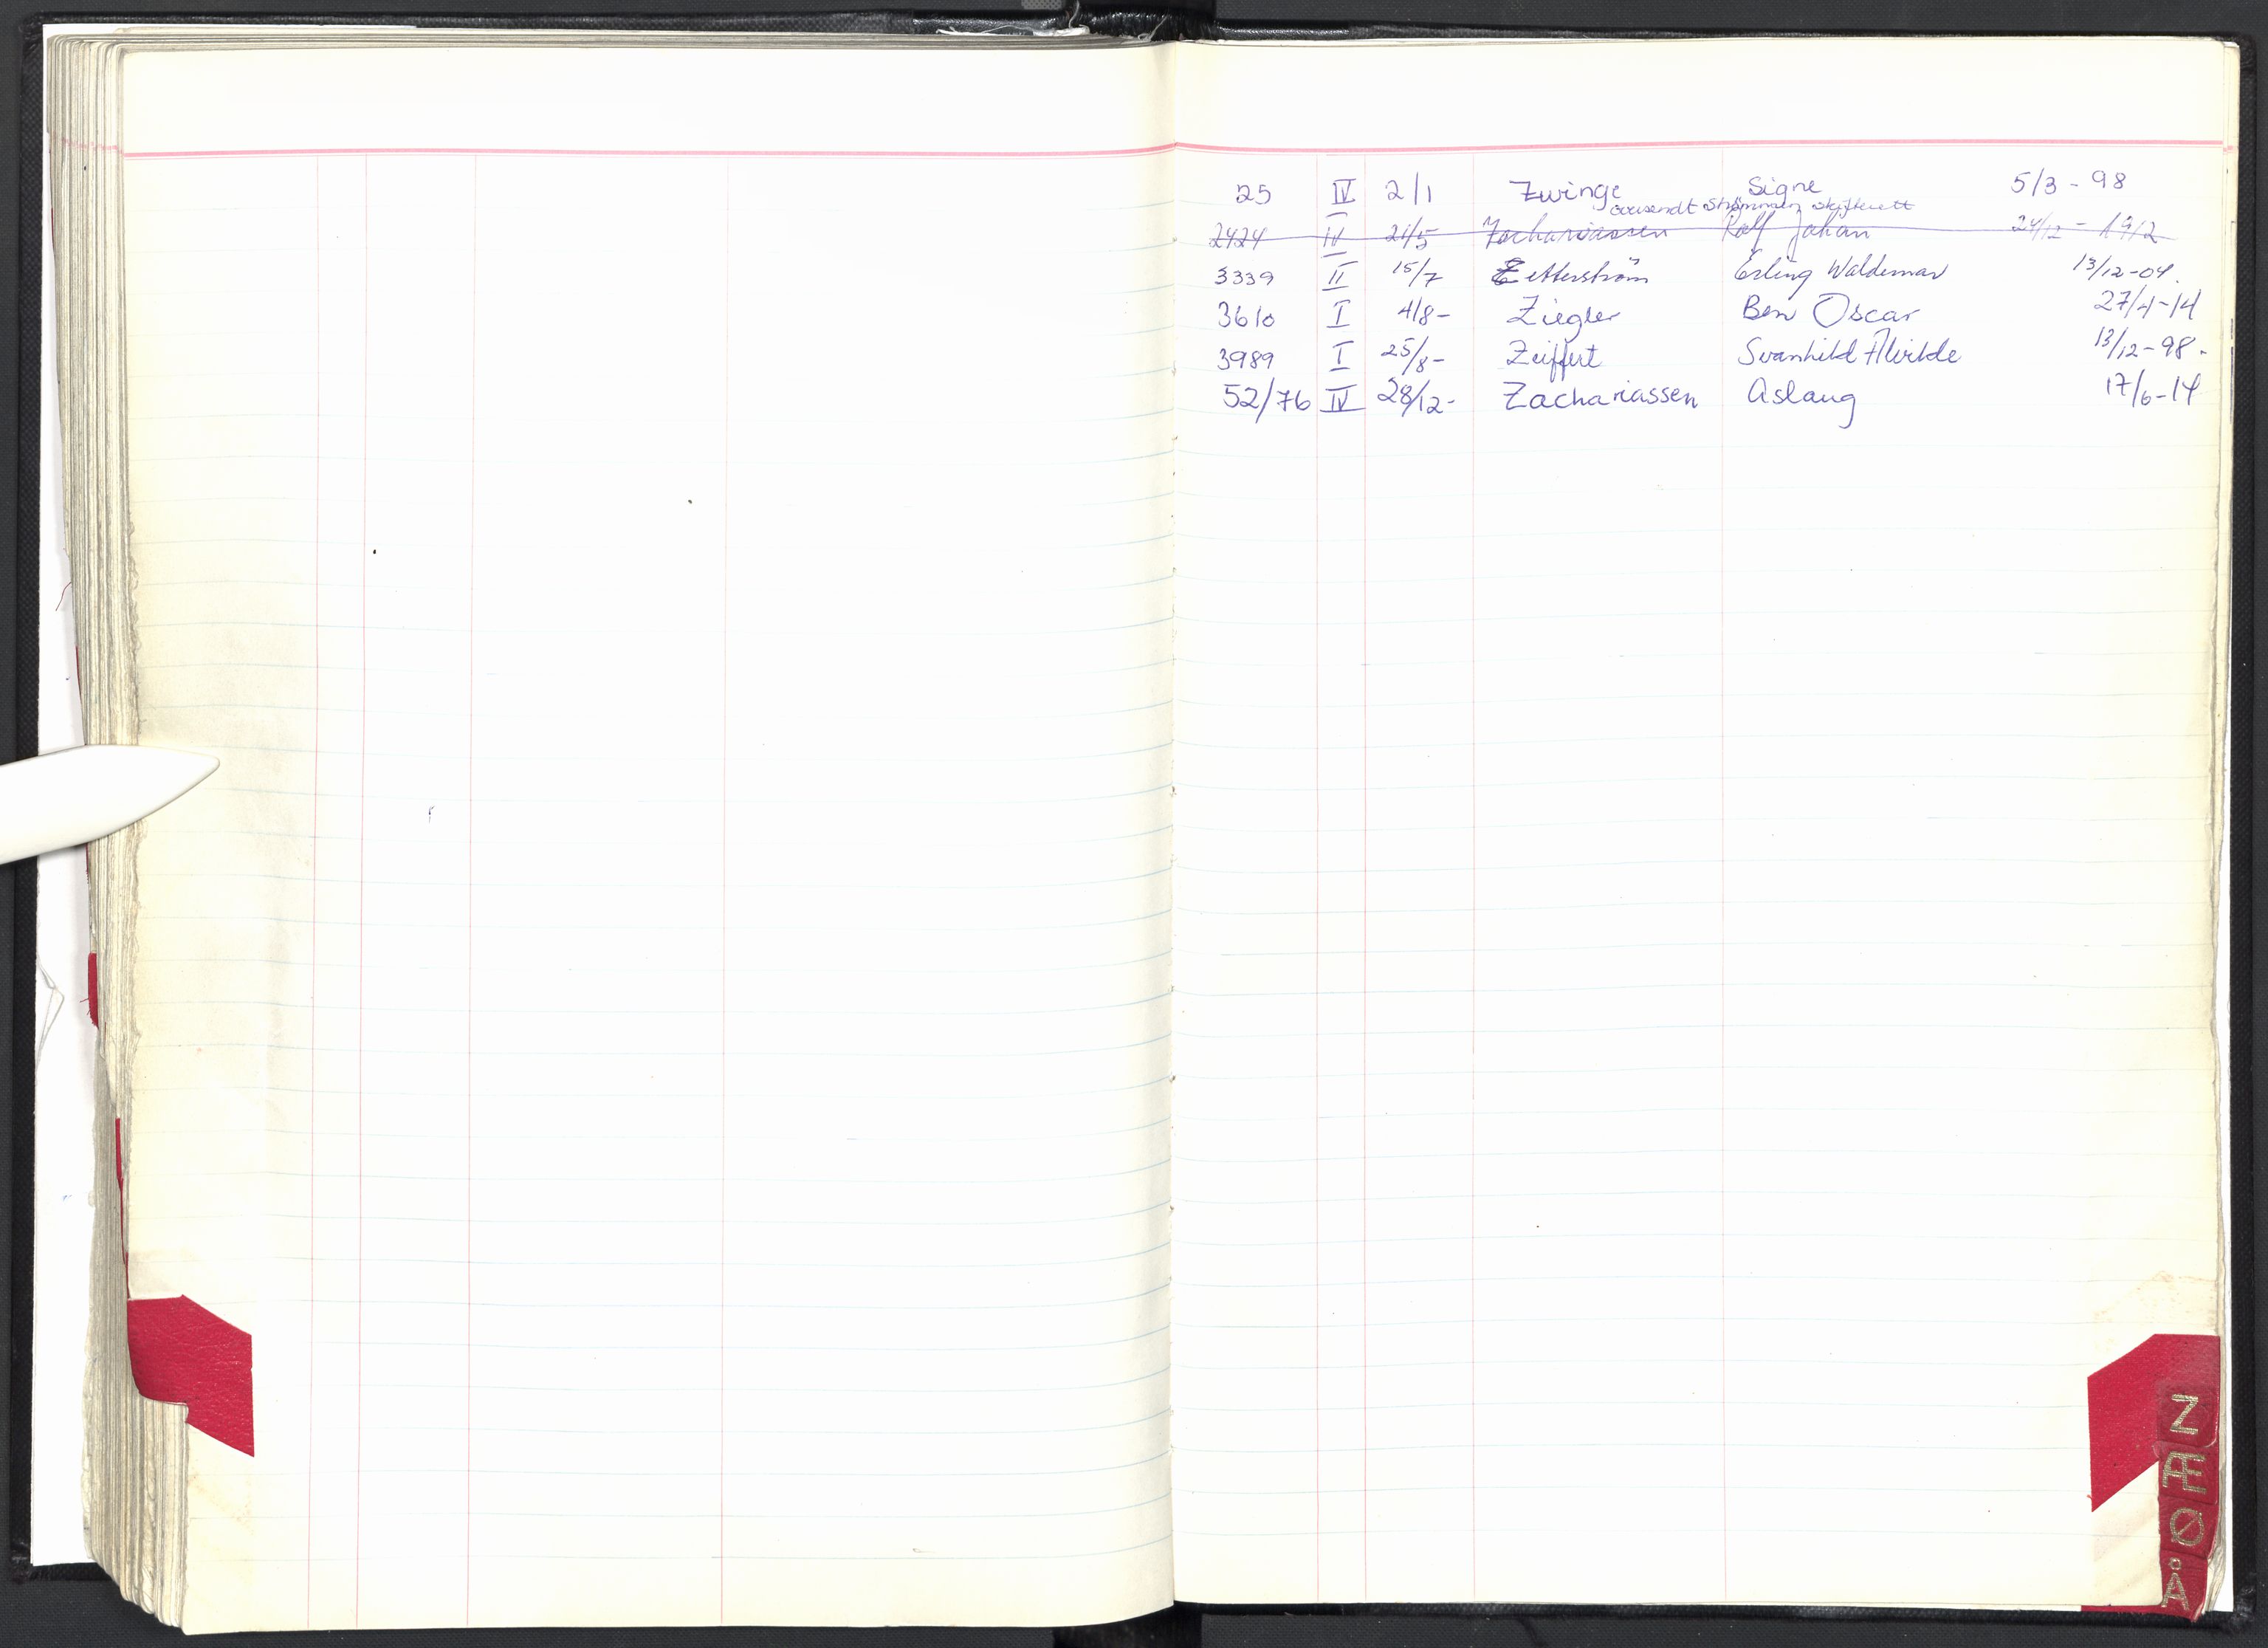 25 IV 2/1 Zwinge Signe 5/3 - 98
oversendt Strömmen skifterett
2424 IV 21/5 Zachariassen Rolf Johan 24/12 - 1912
3339 II 15/7 Zetterström Erling Waldemar 13/12-04.
3610 I 4/8- Ziegler Ben Oscar 27/4-14
3989 I 25/8- Zeiffert Svanhild Alvilde 13/12-98.
52/76 IV 28/12- Zachariassen Aslaug 17/6-14
Z
Æ
Ø
Å